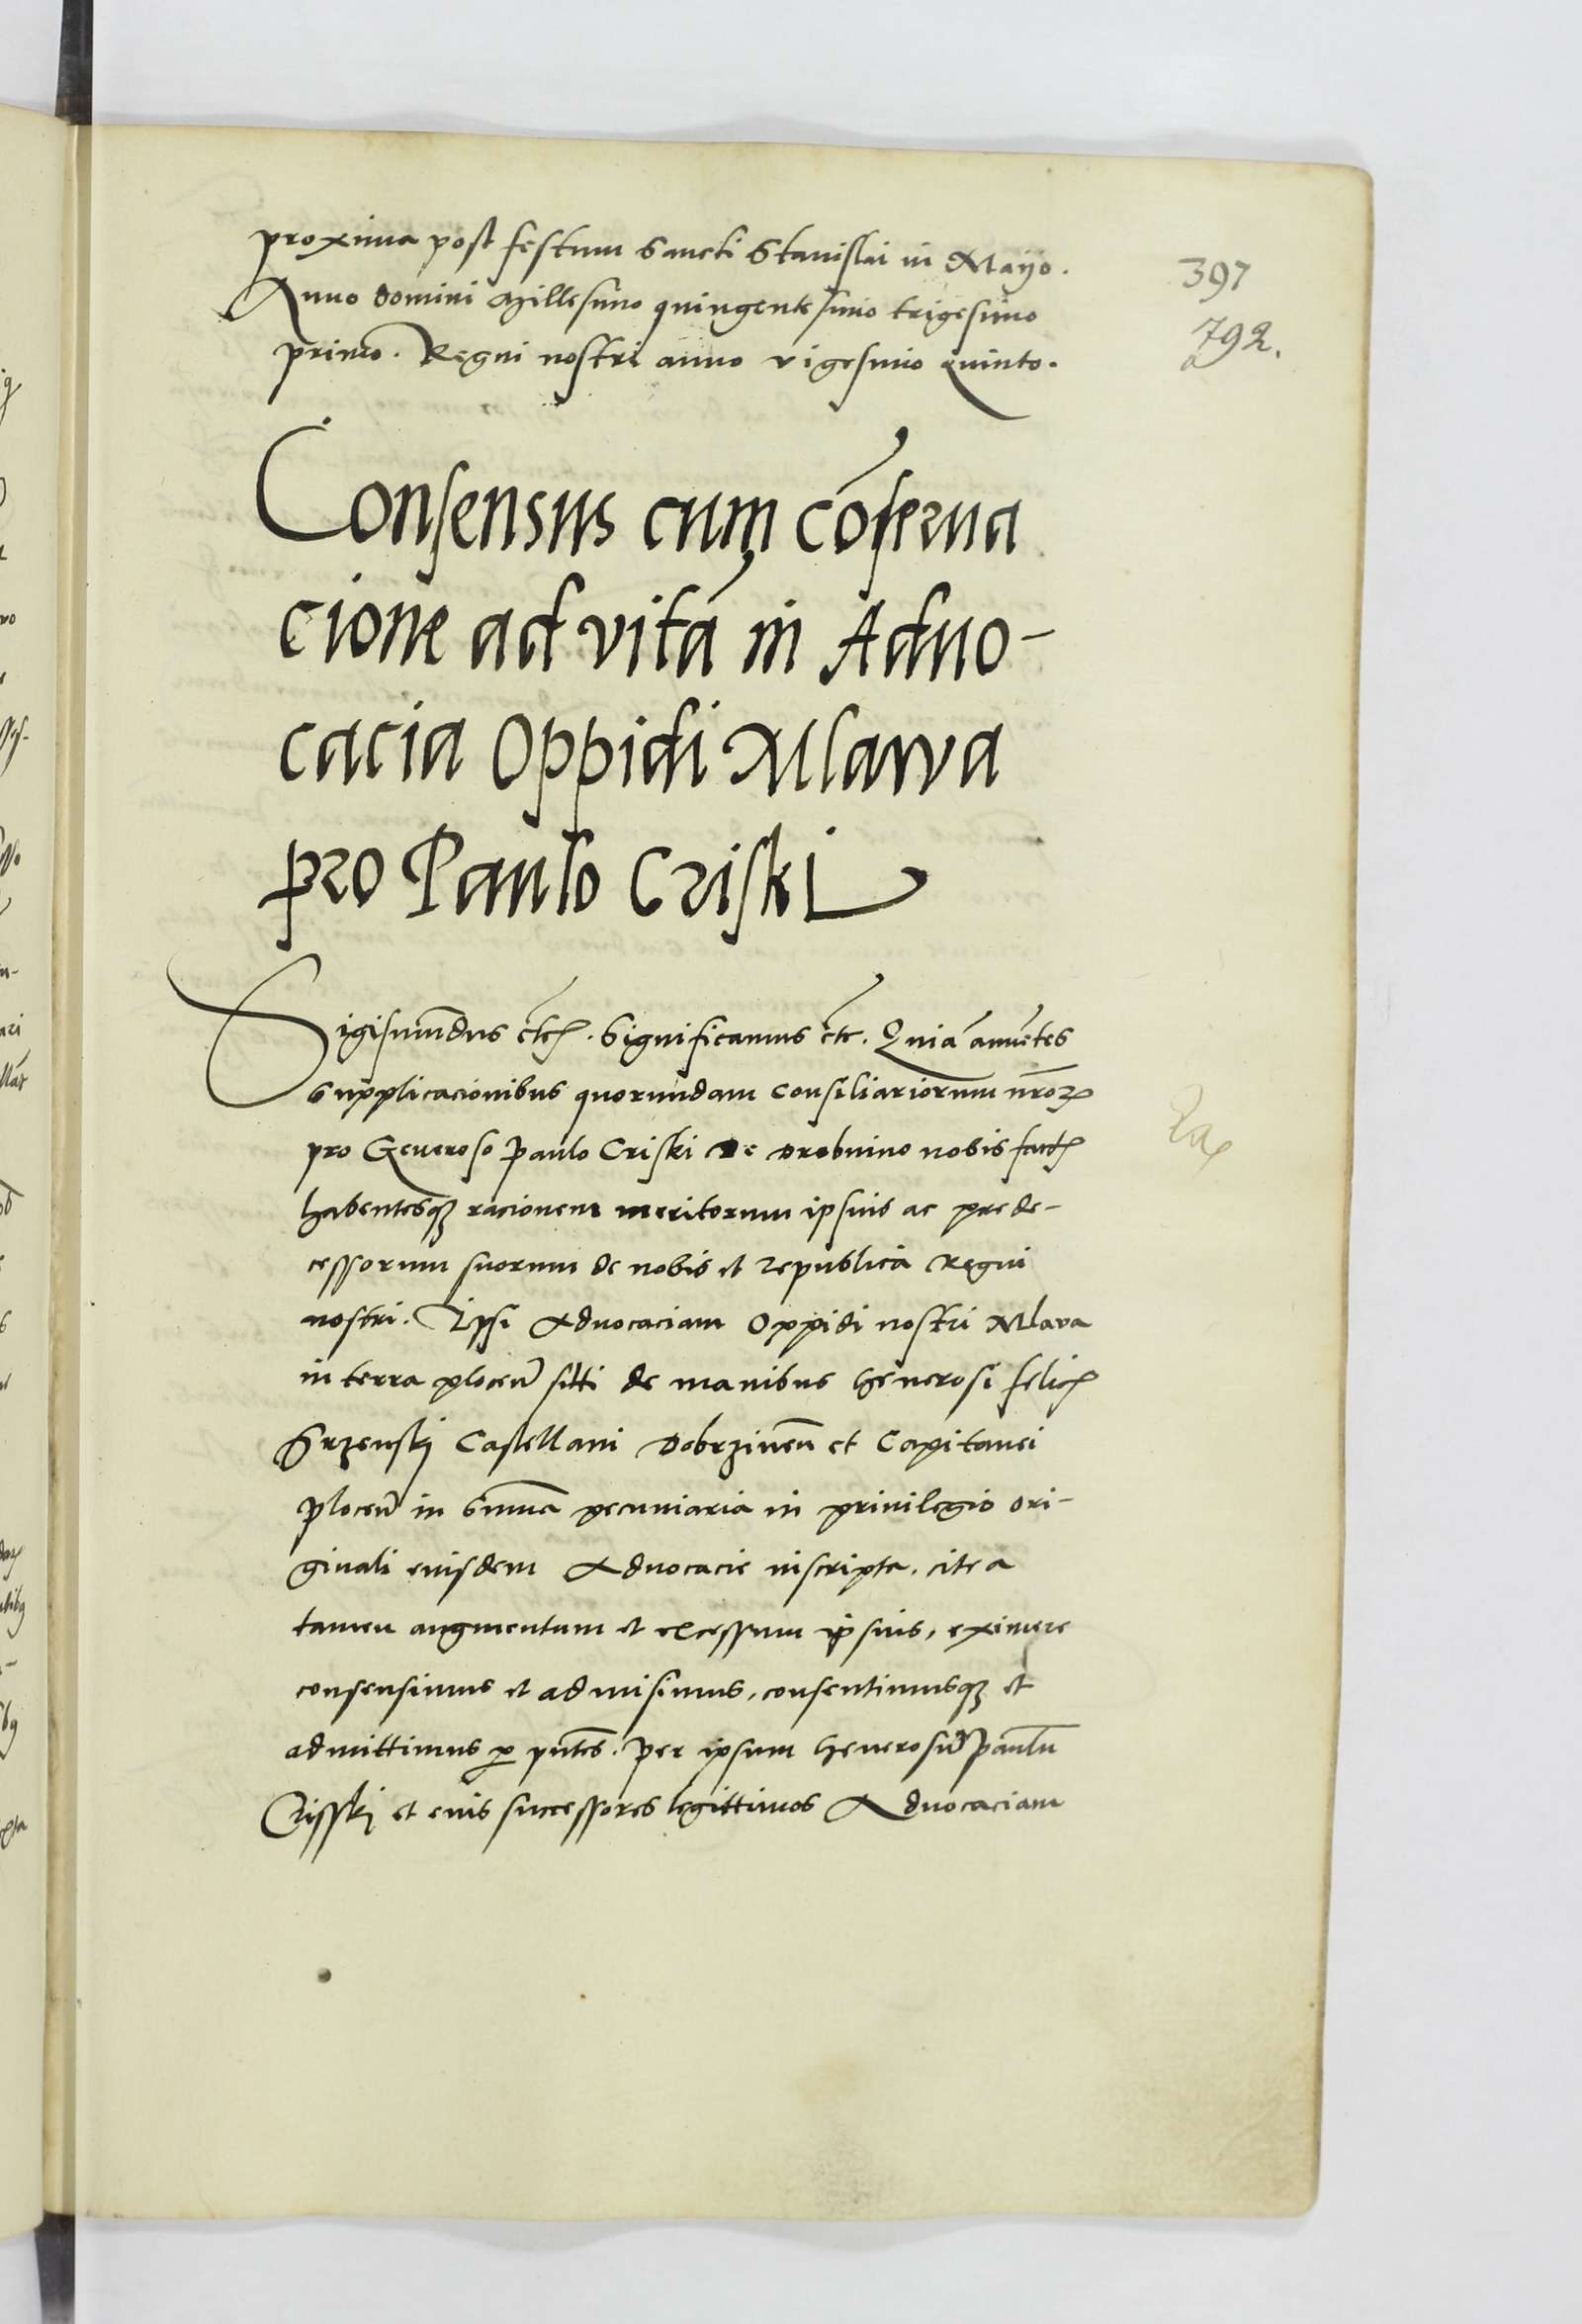 proxima post festum Sancti Stanislai in Mayo.
397
Anno domini Millesimo quingentesimo trigesimo
792.
primo. Regni nostri anno vigesimo Quinto.
Consensus cum cōserua
cione ad vitā in Aduo-
cacia Oppidi Mlawa
pro Paulo Criski
Sigismūdus etc. Significamus etc. Quia ānuētes
Supplicacionibus quorundam consiliariorum nr̄oꝝ
pro Generoso Paulo Criski De Drobnino nobis
habentesqꝫ racionem meritorum ipsius ac prede-
cessorum suorum de nobis et republica Regni
nostri. Ipsi Aduocaciam Oppidi nostri Mlava
in terra plocen̄ de manibus Generosi
Srzenskj Castellani Dobrzinen̄ et Capitanei
Plocen̄ in Sum̄a pecuniaria in priuilegio ori-
ginali eiusdem Aduocacie inscripta, citra
tamen augmentum et excessum ipsius, eximere
consensimus et admisimus, consentimusqꝫ et
admittimus ꝑ pn̄tes. per ipsum Generosū Paulū
Crisskj et eius successores legittimos Aduocaciam